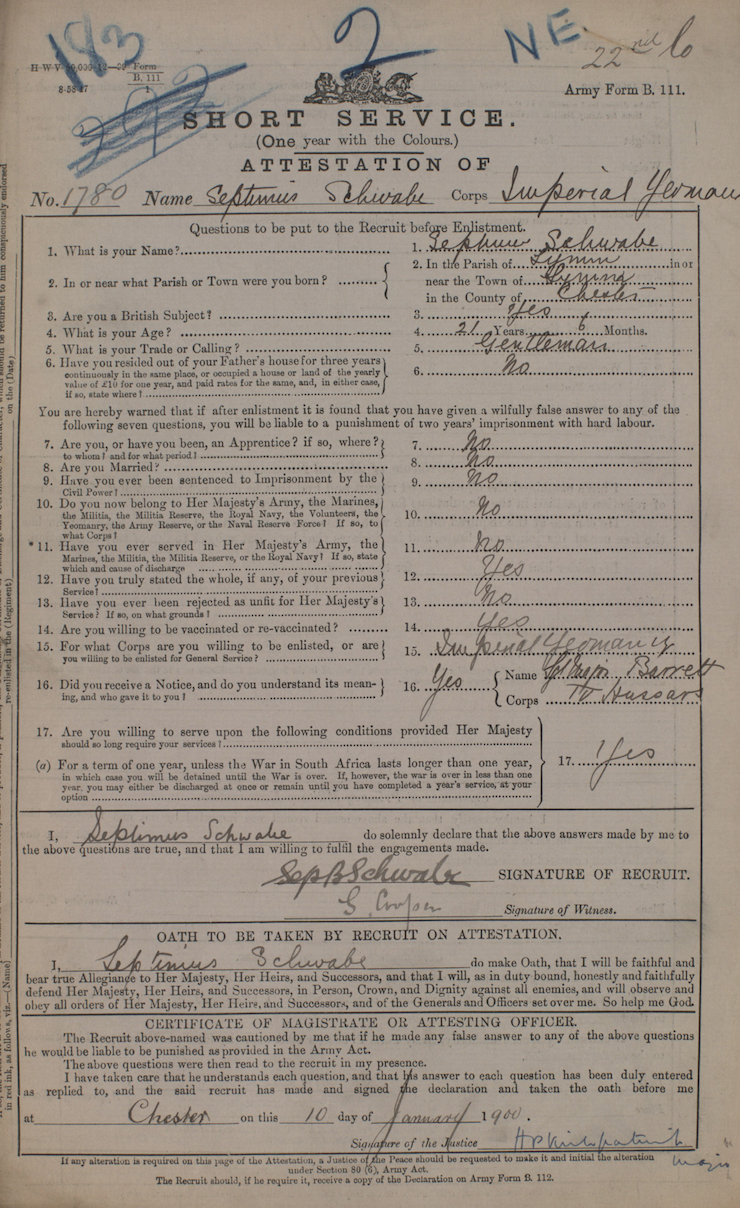 183
2
NE
22nd Co
H W V 50,000 12—99 Form B. 111
8-58-87 1
Army Form B. 111.
SHORT SERVICE.
(One year with the Colours.)
ATTESTATION OF
No. 1780 Name Septimus Schwabe Corps Imperial Yeoman
Questions to be put to the Recruit before Enlistment.
1. What is your Name? 1. Septimus Schwabe
2. In or near what Parish or Town were you born? 2. In the Parish of Lymm in or
near the Town of Lymm
in the County of Chester
3. Are you a British Subject? 3. Yes
4. What is your Age? 4. 21 Years 6 Months.
5. What is your Trade or Calling? 5. Gentleman
6. Have you resided out of your Father's house for three years
continuously in the same place, or occupied a house or land of the yearly
value of £10 for one year, and paid rates for the same, and, in either case,
if so, state where? 6. No
You are hereby warned that if after enlistment it is found that you have given a wilfully false answer to any of the
following seven questions, you will be liable to a punishment of two years' imprisonment with hard labour.
7. Are you, or have you been, an Apprentice? if so, where?
to whom? and for what period? 7. No
8. Are you Married? 8. No
9. Have you ever been sentenced to Imprisonment by the
Civil Power? 9. No
10. Do you now belong to Her Majesty's Army, the Marines,
the Militia, the Militia Reserve, the Royal Navy, the Volunteers, the
Yeomanry, the Army Reserve, or the Naval Reserve Force? If so, to
what Corps? 10. No
*11. Have you ever served in Her Majesty's Army, the
Marines, the Militia, the Militia Reserve, or the Royal Navy? If so, state
which and cause of discharge 11. No
12. Have you truly stated the whole, if any, of your previous
Service? 12. Yes
13. Have you ever been rejected as unfit for Her Majesty's
Service? If so, on what grounds? 13. No
14. Are you willing to be vaccinated or re-vaccinated? 14. Yes
15. For what Corps are you willing to be enlisted, or are
you willing to be enlisted for General Service? 15. Imperial Yeomanry
16. Did you receive a Notice, and do you understand its mean-
ing, and who gave it to you? 16. Yes Name Barrett
Corps Hussars
17. Are you willing to serve upon the following conditions provided Her Majesty
should so long require your services?
(a) For a term of one year, unless the War in South Africa lasts longer than one year,
in which case you will be detained until the War is over. If, however, the war is over in less than one
year, you may either be discharged at once or remain until you have completed a year's service, at your
option 17. Yes
I, Septimus Schwabe do solemnly declare that the above answers made by me to
the above questions are true, and that I am willing to fulfil the engagements made.
Sep B Schwabe SIGNATURE OF RECRUIT.
G. Cooper Signature of Witness.
OATH TO BE TAKEN BY RECRUIT ON ATTESTATION.
I, Septimus Schwabe do make Oath, that I will be faithful and
bear true Allegiance to Her Majesty, Her Heirs, and Successors, and that I will, as in duty bound, honestly and faithfully
defend Her Majesty, Her Heirs, and Successors, in Person, Crown, and Dignity against all enemies, and will observe and
obey all orders of Her Majesty, Her Heirs, and Successors, and of the Generals and Officers set over me. So help me God.
CERTIFICATE OF MAGISTRATE OR ATTESTING OFFICER.
The Recruit above-named was cautioned by me that if he made any false answer to any of the above questions
he would be liable to be punished as provided in the Army Act.
The above questions were then read to the recruit in my presence.
I have taken care that he understands each question, and that his answer to each question has been duly entered
as replied to, and the said recruit has made and signed the declaration and taken the oath before me
at Chester on this 10 day of January 1900.
Signature of the Justice H P Kirkpatrick
Major
If any alteration is required on this page of the Attestation, a Justice of the Peace should be requested to make it and initial the alteration
under Section 80 (6), Army Act.
The Recruit should, if he require it, receive a copy of the Declaration on Army Form B. 112.